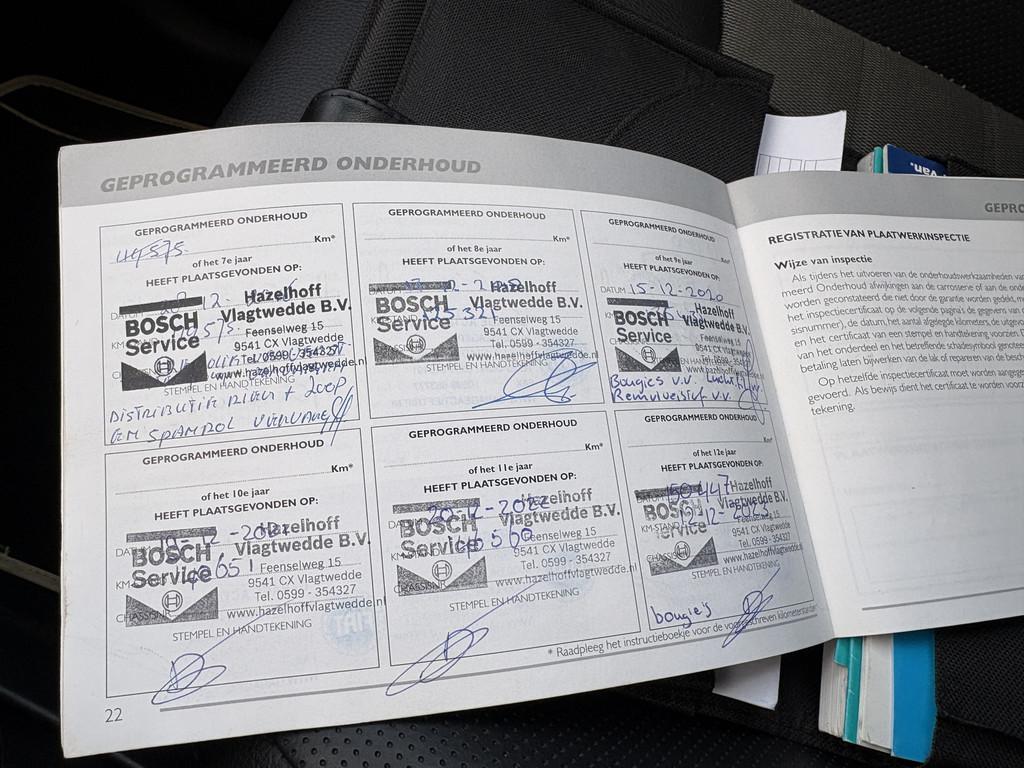 GEPROGRAMMEERD ONDERHOUD
GEPROGRAMMEERD ONDERHOUD
Km*
of het 7e jaar
HEEFT PLAATSGEVONDEN OP:
BOSCH
Service
Hazelhoff
Vlagtwedde B.V.
Feenselweg 15
9541 CX Vlagtwedde
Tel. 0599 - 354327
www.hazelhoffvlagtwedde.nl
STEMPEL EN HANDTEKENING
DISTRIBUTIE RIEM +
SPANROL
GEPROGRAMMEERD ONDERHOUD
Km*
of het 8e jaar
HEEFT PLAATSGEVONDEN OP:
BOSCH
Service
Hazelhoff
Vlagtwedde B.V.
Feenselweg 15
9541 CX Vlagtwedde
Tel. 0599 - 354327
www.hazelhoffvlagtwedde.nl
STEMPEL EN HANDTEKENING
GEPROGRAMMEERD ONDERHOUD
Km*
of het 9e jaar
HEEFT PLAATSGEVONDEN OP:
DATUM 15-12-2020
BOSCH
Service
Hazelhoff
Vlagtwedde B.V.
Feenselweg 15
9541 CX Vlagtwedde
Tel. 0599 - 354327
www.hazelhoffvlagtwedde.nl
STEMPEL EN HANDTEKENING
Bougies v.v.
Remvloeistof v.v.
GEPROGRAMMEERD ONDERHOUD
Km*
of het 10e jaar
HEEFT PLAATSGEVONDEN OP:
BOSCH
Service
Hazelhoff
Vlagtwedde B.V.
Feenselweg 15
9541 CX Vlagtwedde
Tel. 0599 - 354327
www.hazelhoffvlagtwedde.nl
CHASSISNR.
STEMPEL EN HANDTEKENING
GEPROGRAMMEERD ONDERHOUD
Km*
of het 11e jaar
HEEFT PLAATSGEVONDEN OP:
20-12-2022
BOSCH
Service
Hazelhoff
Vlagtwedde B.V.
Feenselweg 15
9541 CX Vlagtwedde
Tel. 0599 - 354327
www.hazelhoffvlagtwedde.nl
CHASSISNR.
STEMPEL EN HANDTEKENING
GEPROGRAMMEERD ONDERHOUD
Km*
of het 12e jaar
HEEFT PLAATSGEVONDEN OP:
150447
BOSCH
Service
Hazelhoff
Vlagtwedde B.V.
Feenselweg 15
9541 CX Vlagtwedde
Tel. 0599 - 354327
www.hazelhoffvlagtwedde.nl
STEMPEL EN HANDTEKENING
bougie's
* Raadpleeg het instructieboekje voor de voorgeschreven kilometerstanden
22
GEPRO
REGISTRATIE VAN PLAATWERKINSPECTIE
Wijze van inspectie
Als tijdens het uitvoeren van de onderhoudswerkzaamheden van
meerd Onderhoud afwijkingen aan de carrosserie of aan de onde
worden geconstateerd die niet door de garantie worden gedekt,
het inspectiecertificaat op de volgende pagina's de gegevens van
sisnummer), de datum, het aantal afgelegde kilometers, de
en het certificaat van een stempel en handtekening voorzien.
van het onderdeel en het betreffende schadesymbool genoteerd
betaling laten bijwerken van de lak of repareren van de
Op hetzelfde inspectiecertificaat moet worden
gevoerd. Als bewijs dient het certificaat te worden
tekening.
van.